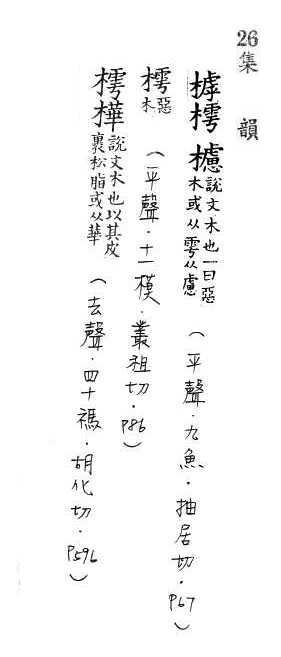 26集 韻
㯉樗櫖說文木也一曰惡木或从雩从慮（平聲．九魚．抽居切．P67）
樗惡木（平聲．十一模．叢租切．P86）
樗樺說文木也以其皮裹松脂或从華（去聲．四十禡．胡化切．P596）